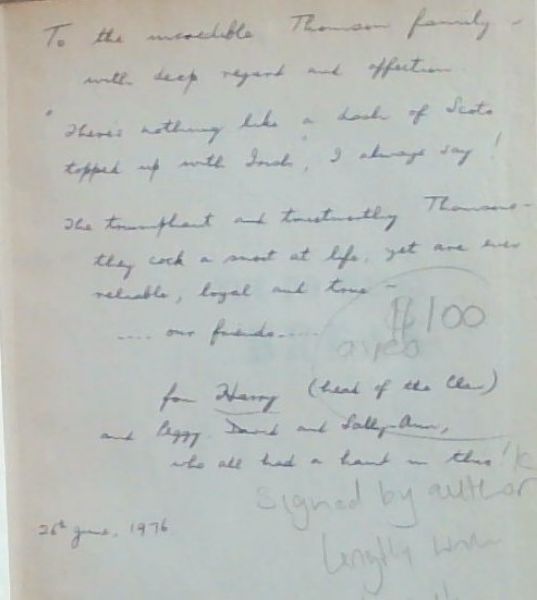 To the incredible Thomson family -
with deep regard and affection.
"There's nothing like a dash of Scots
topped up with Irish", I always say!
The triumphant and trustworthy Thomsons -
they cock a snoot at life, yet are ever
reliable, loyal and true -
.... our friends.....
$100
for Harry (head of the Clan)
and Peggy. David and Sally-Ann,
who all had a hand in this!
Signed by author
26th June, 1976
lengthy